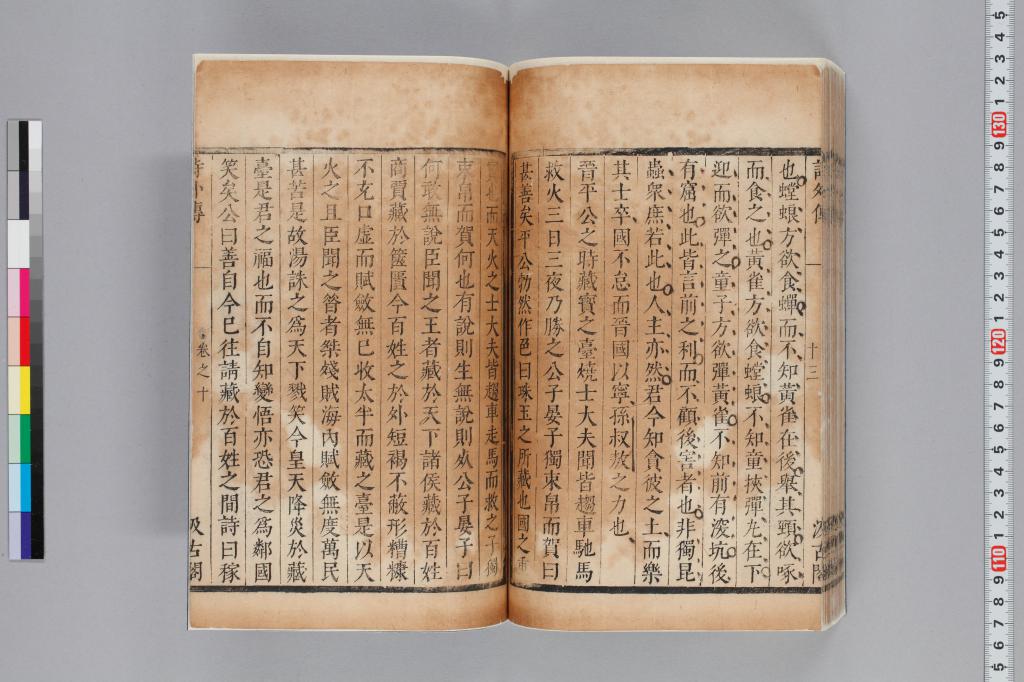 詩外傳
十三
汲古閣
也螳蜋方欲食蟬而不知黃雀在後舉其頸欲啄
而食之也黃雀方欲食螳蜋不知童挾彈丸在下
迎而欲彈之童子方欲彈黃雀不知前有深坑後
有窟也此皆言前之利而不顧後害者也非獨昆
蟲衆庶若此也人主亦然君今知貪彼之土而樂
其士卒國不怠而晉國以寧孫叔敖之力也
晉平公之時藏寶之臺燒士大夫聞皆趨車馳馬
救火三日三夜乃勝之公子晏子獨束帛而賀曰
甚善矣平公勃然作色曰珠玉之所藏也國之重
也而天火之士大夫皆趨車走馬而救之子獨
束帛而賀何也有說則生無說則死公子晏子曰
何敢無說臣聞之王者藏於天下諸侯藏於百姓
商賈藏於篋匱今百姓之於外短褐不蔽形糟糠
不充口虛而賦斂無已收太半而藏之臺是以天
火之且臣聞之昝者桀殘賊海內賦斂無度萬民
甚苦是故湯誅之爲天下戮笑今皇天降災於藏
臺是君之福也而不自知變悟亦恐君之爲鄰國
笑矣公曰善自今已往請藏於百姓之間詩曰稼
詩外傳
卷之十
汲古閣
5
4
3
2
1
130
9
8
7
6
5
4
3
2
1
120
9
8
7
6
5
4
3
2
1
110
9
8
7
6
5